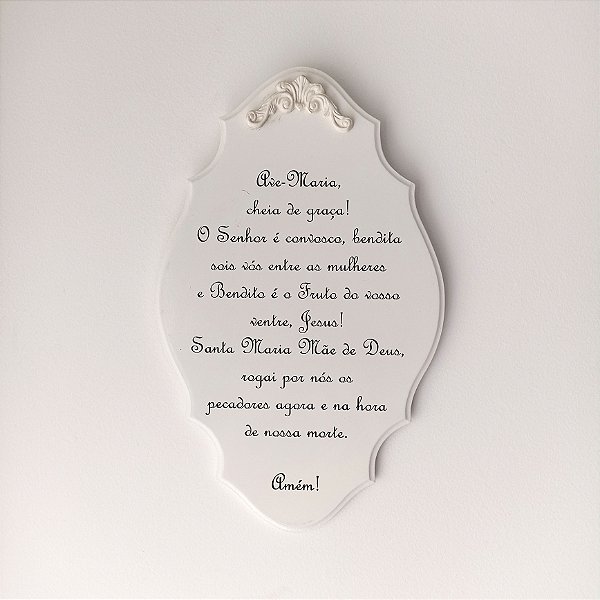 Ave-Maria,
cheia de graça!
O Senhor é convosco, bendita
sois vós entre as mulheres
e Bendito é o Fruto do vosso
ventre, Jesus!
Santa Maria Mãe de Deus,
rogai por nós os
pecadores agora e na hora
de nossa morte.
Amém!